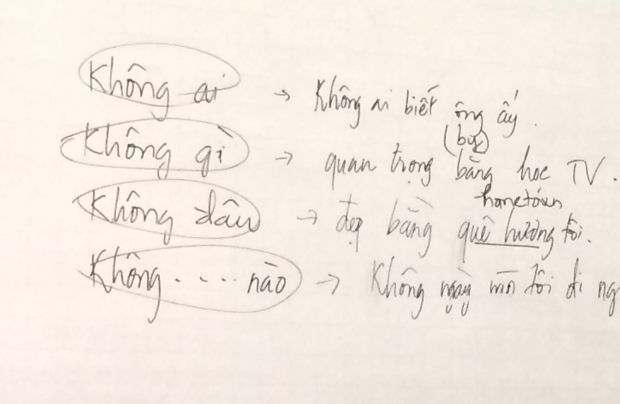 Không ai → Không ai biết ông ấy.
(by)
Không gì → quan trọng bằng học TV.
hometown
Không đâu → đẹp bằng quê hương tôi.
Không .... nào → Không ngày nào tôi đi